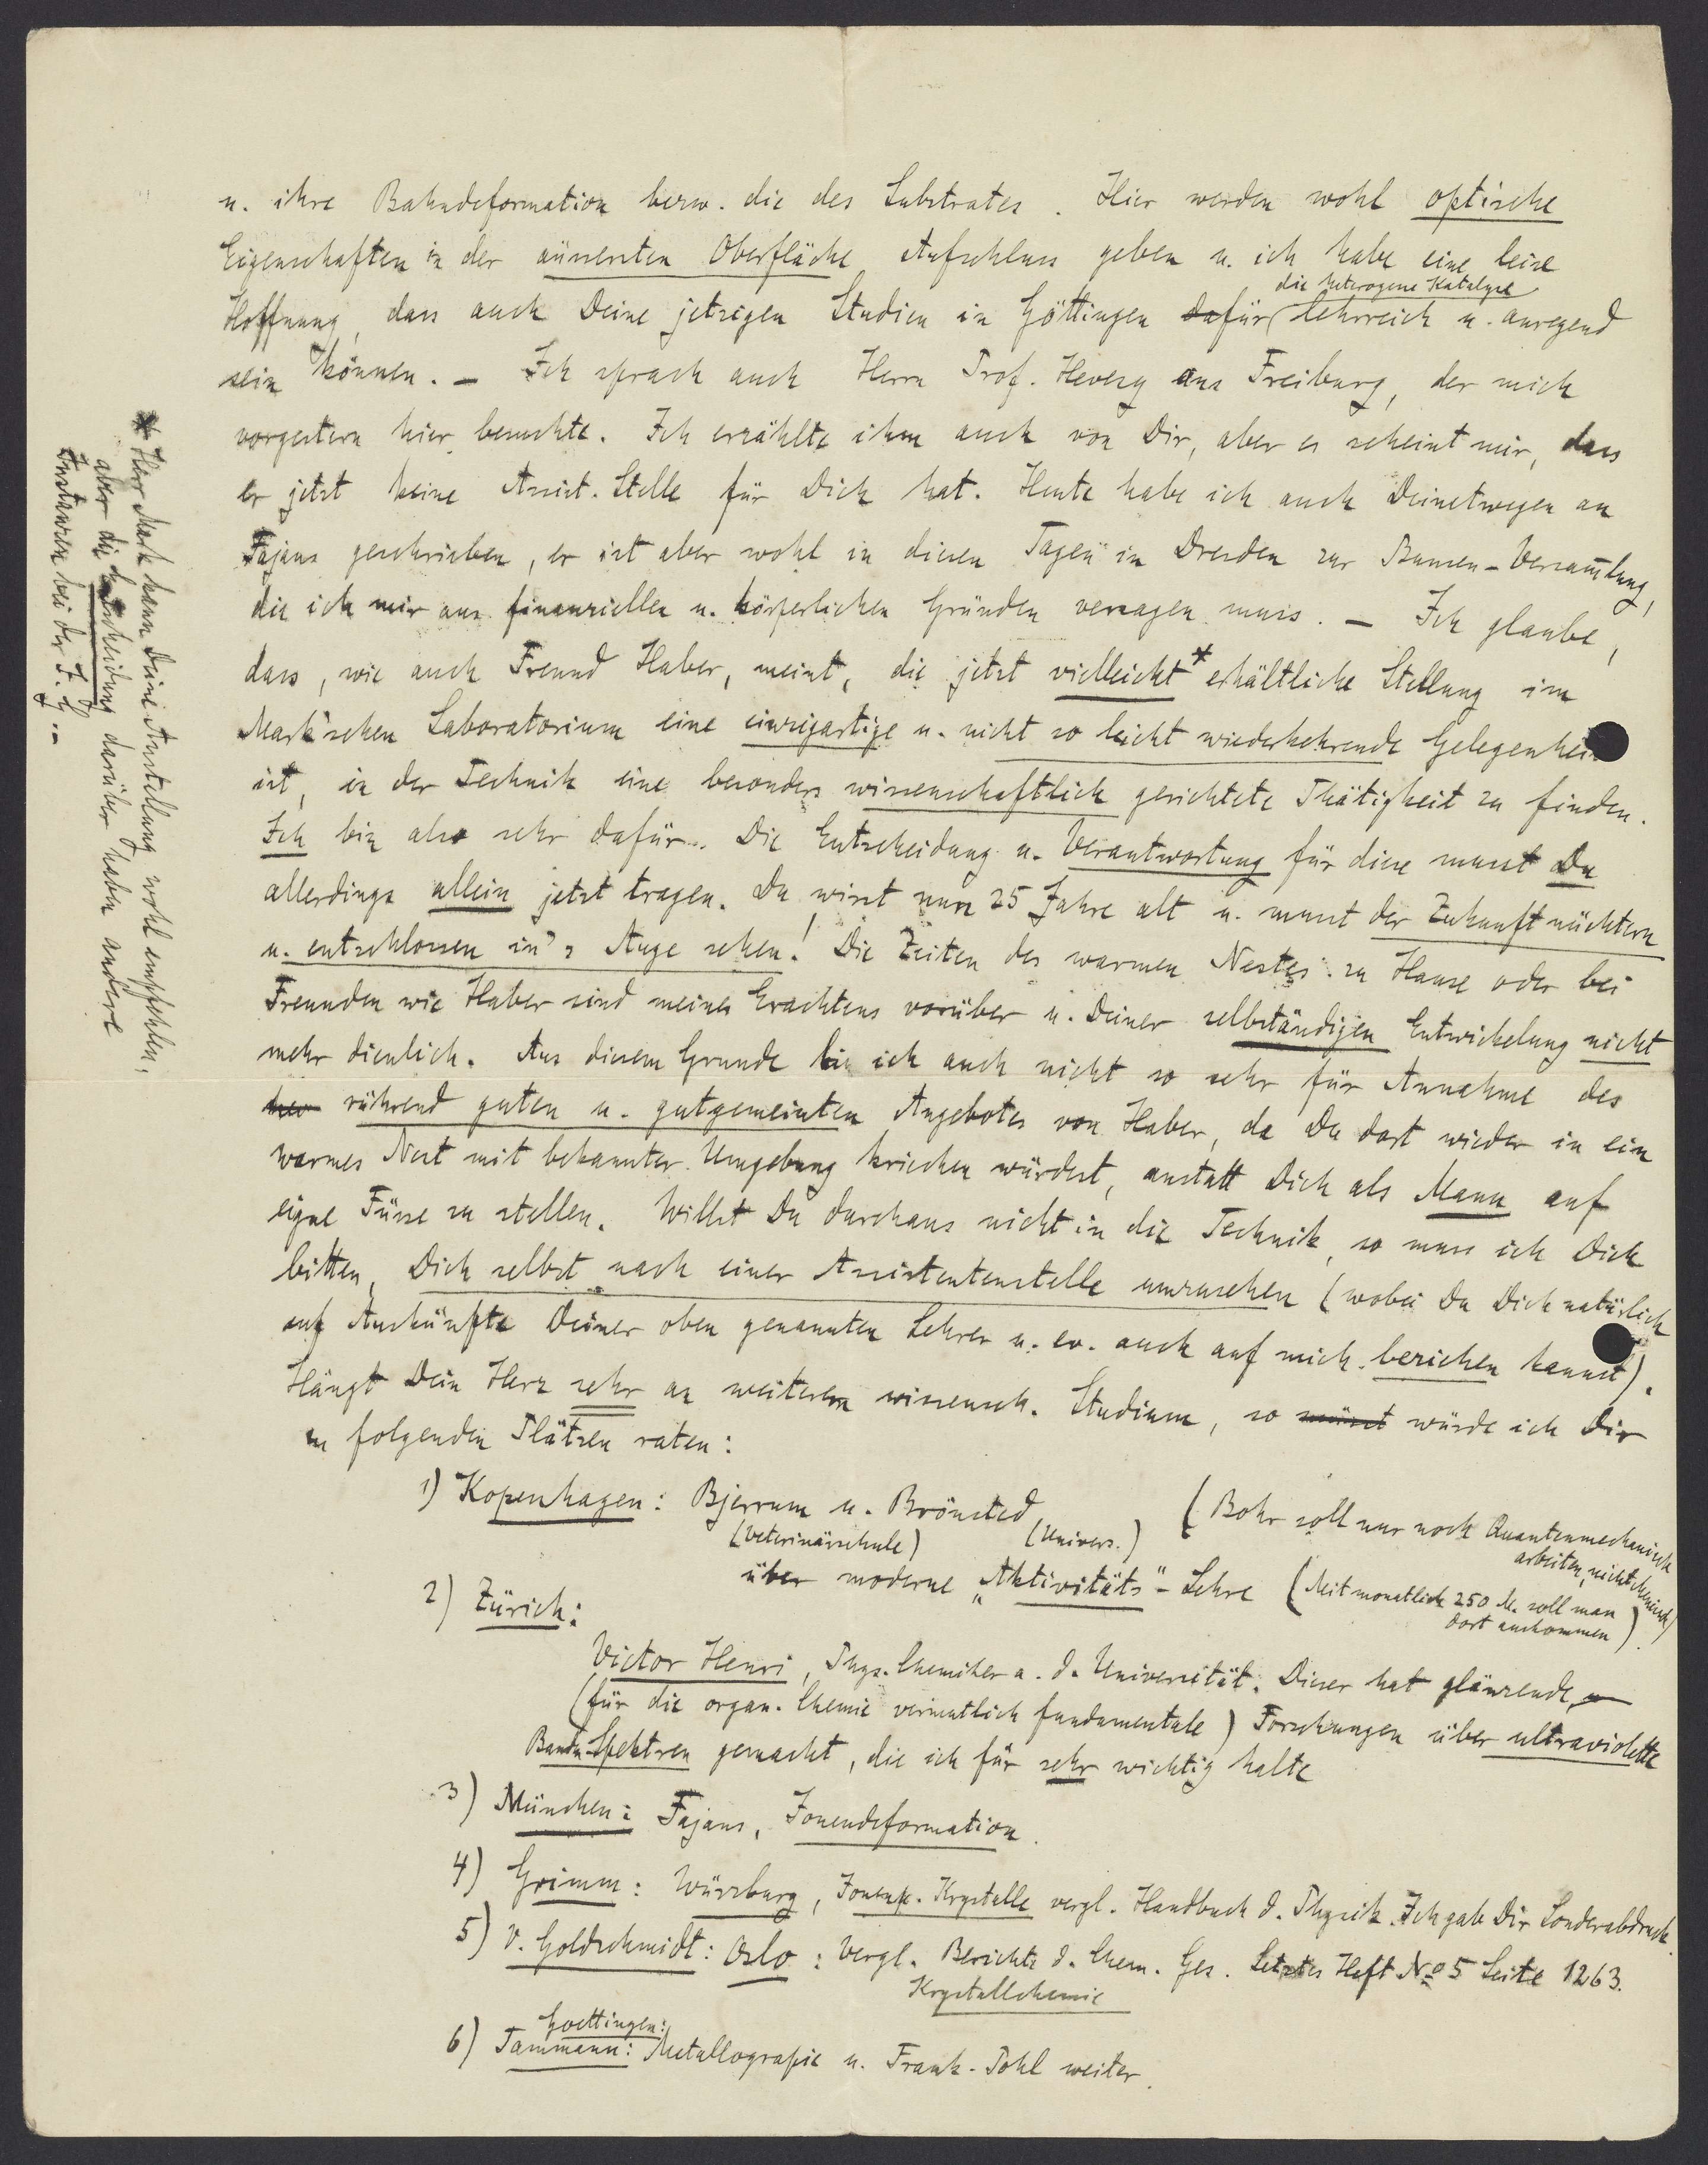 u. ihre Bahndeformation bezw. die des Substrates. Hier werden wohl optische
Eigenschaften in der äussersten Oberfläche Aufschluss geben u. ich habe eine leise
die heterogene Katalyse
Hoffnung, dass auch Deine jetzigen Studien in Göttingen dafür lehrreich u. anregend
sein können. – Ich sprach auch Herrn Prof. Hevesy aus Freiburg, der mich
vorgestern hier besuchte. Ich erzählte ihm auch von Dir, aber es scheint mir, dass
er jetzt keine Assist. Stelle für Dich hat. Heute habe ich auch Deinetwegen an
Fajans geschrieben, er ist aber wohl in diesen Tagen in Dresden zur Bunsen-Versammlung,
die ich mir aus finanziellen u. körperlichen Gründen versagen muss. – Ich glaube,
dass, wie auch Freund Haber, meint, die jetzt vielleicht* erhältliche Stellung im
Mark'schen Laboratorium eine einzigartige u. nicht so leicht wiederkehrende Gelegenheit
ist, in der Technik eine besonders wissenschaftlich gerichtete Thätigkeit zu finden.
Ich bin also sehr dafür. Die Entscheidung u. Verantwortung für diese musst Du
allerdings allein jetzt tragen. Du wirst nun 25 Jahre alt u. musst der Zukunft nüchtern
u. entschlossen in's Auge sehen! Die Zeiten des warmen Nestes zu Hause oder bei
Freunden wie Haber sind meines Erachtens vorüber u. Deiner selbständigen Entwickelung nicht
mehr dienlich. Aus diesem Grunde bin ich auch nicht so sehr für Annahme des
rührend guten u. gutgemeinten Angebotes von Haber, da Du dort wieder in ein
warmes Nest mit bekannter Umgebung kriechen würdest, anstatt Dich als Mann auf
eigne Füsse zu stellen. Willst Du durchaus nicht in die Technik, so muss ich Dich
bitten, Dich selbst nach einer Assistentenstelle umzusehen (wobei Du Dich natürlich
auf Auskünfte Deiner oben genannten Lehrer u. ev. auch auf mich beziehen kannst).
Hängt Dein Herz sehr an weiterem wissensch. Studium, so müsst würde ich Dir
zu folgenden Plätzen raten:
1) Kopenhagen: Bjerrum u. Brönsted (Bohr soll nur noch Quantenmechanisch
(Veterinärschule) (Univers.) arbeiten, nicht chemisch)
über moderne „Aktivitäts"-Lehre (Mit monatlich 250 M. soll man
dort auskommen)
2) Zürich:
Victor Henri, Phys. Chemiker a. d. Universität. Dieser hat glänzende
(für die organ. Chemie vermutlich fundamentale) Forschungen über ultraviolette
Banden-Spektren gemacht, die ich für sehr wichtig halte
3) München: Fajans, Ionendeformation.
4) Grimm: Würzburg, Krystalle vergl. Handbuch d. Physik. Ich gab Dir Sonderabdruck.
5) V. Goldschmidt: Oslo: Vergl. Berichte d. Chem. Ges. Letztes Heft No 5 Seite 1263.
Krystallchemie
Goettingen:
6) Tammann: Metallografie u. Frank-Pohl weiter.
* Herr Mark kann Deine Anstellung wohl empfehlen,
aber die Entscheidung darüber haben andere
Instanzen bei der I. G. –